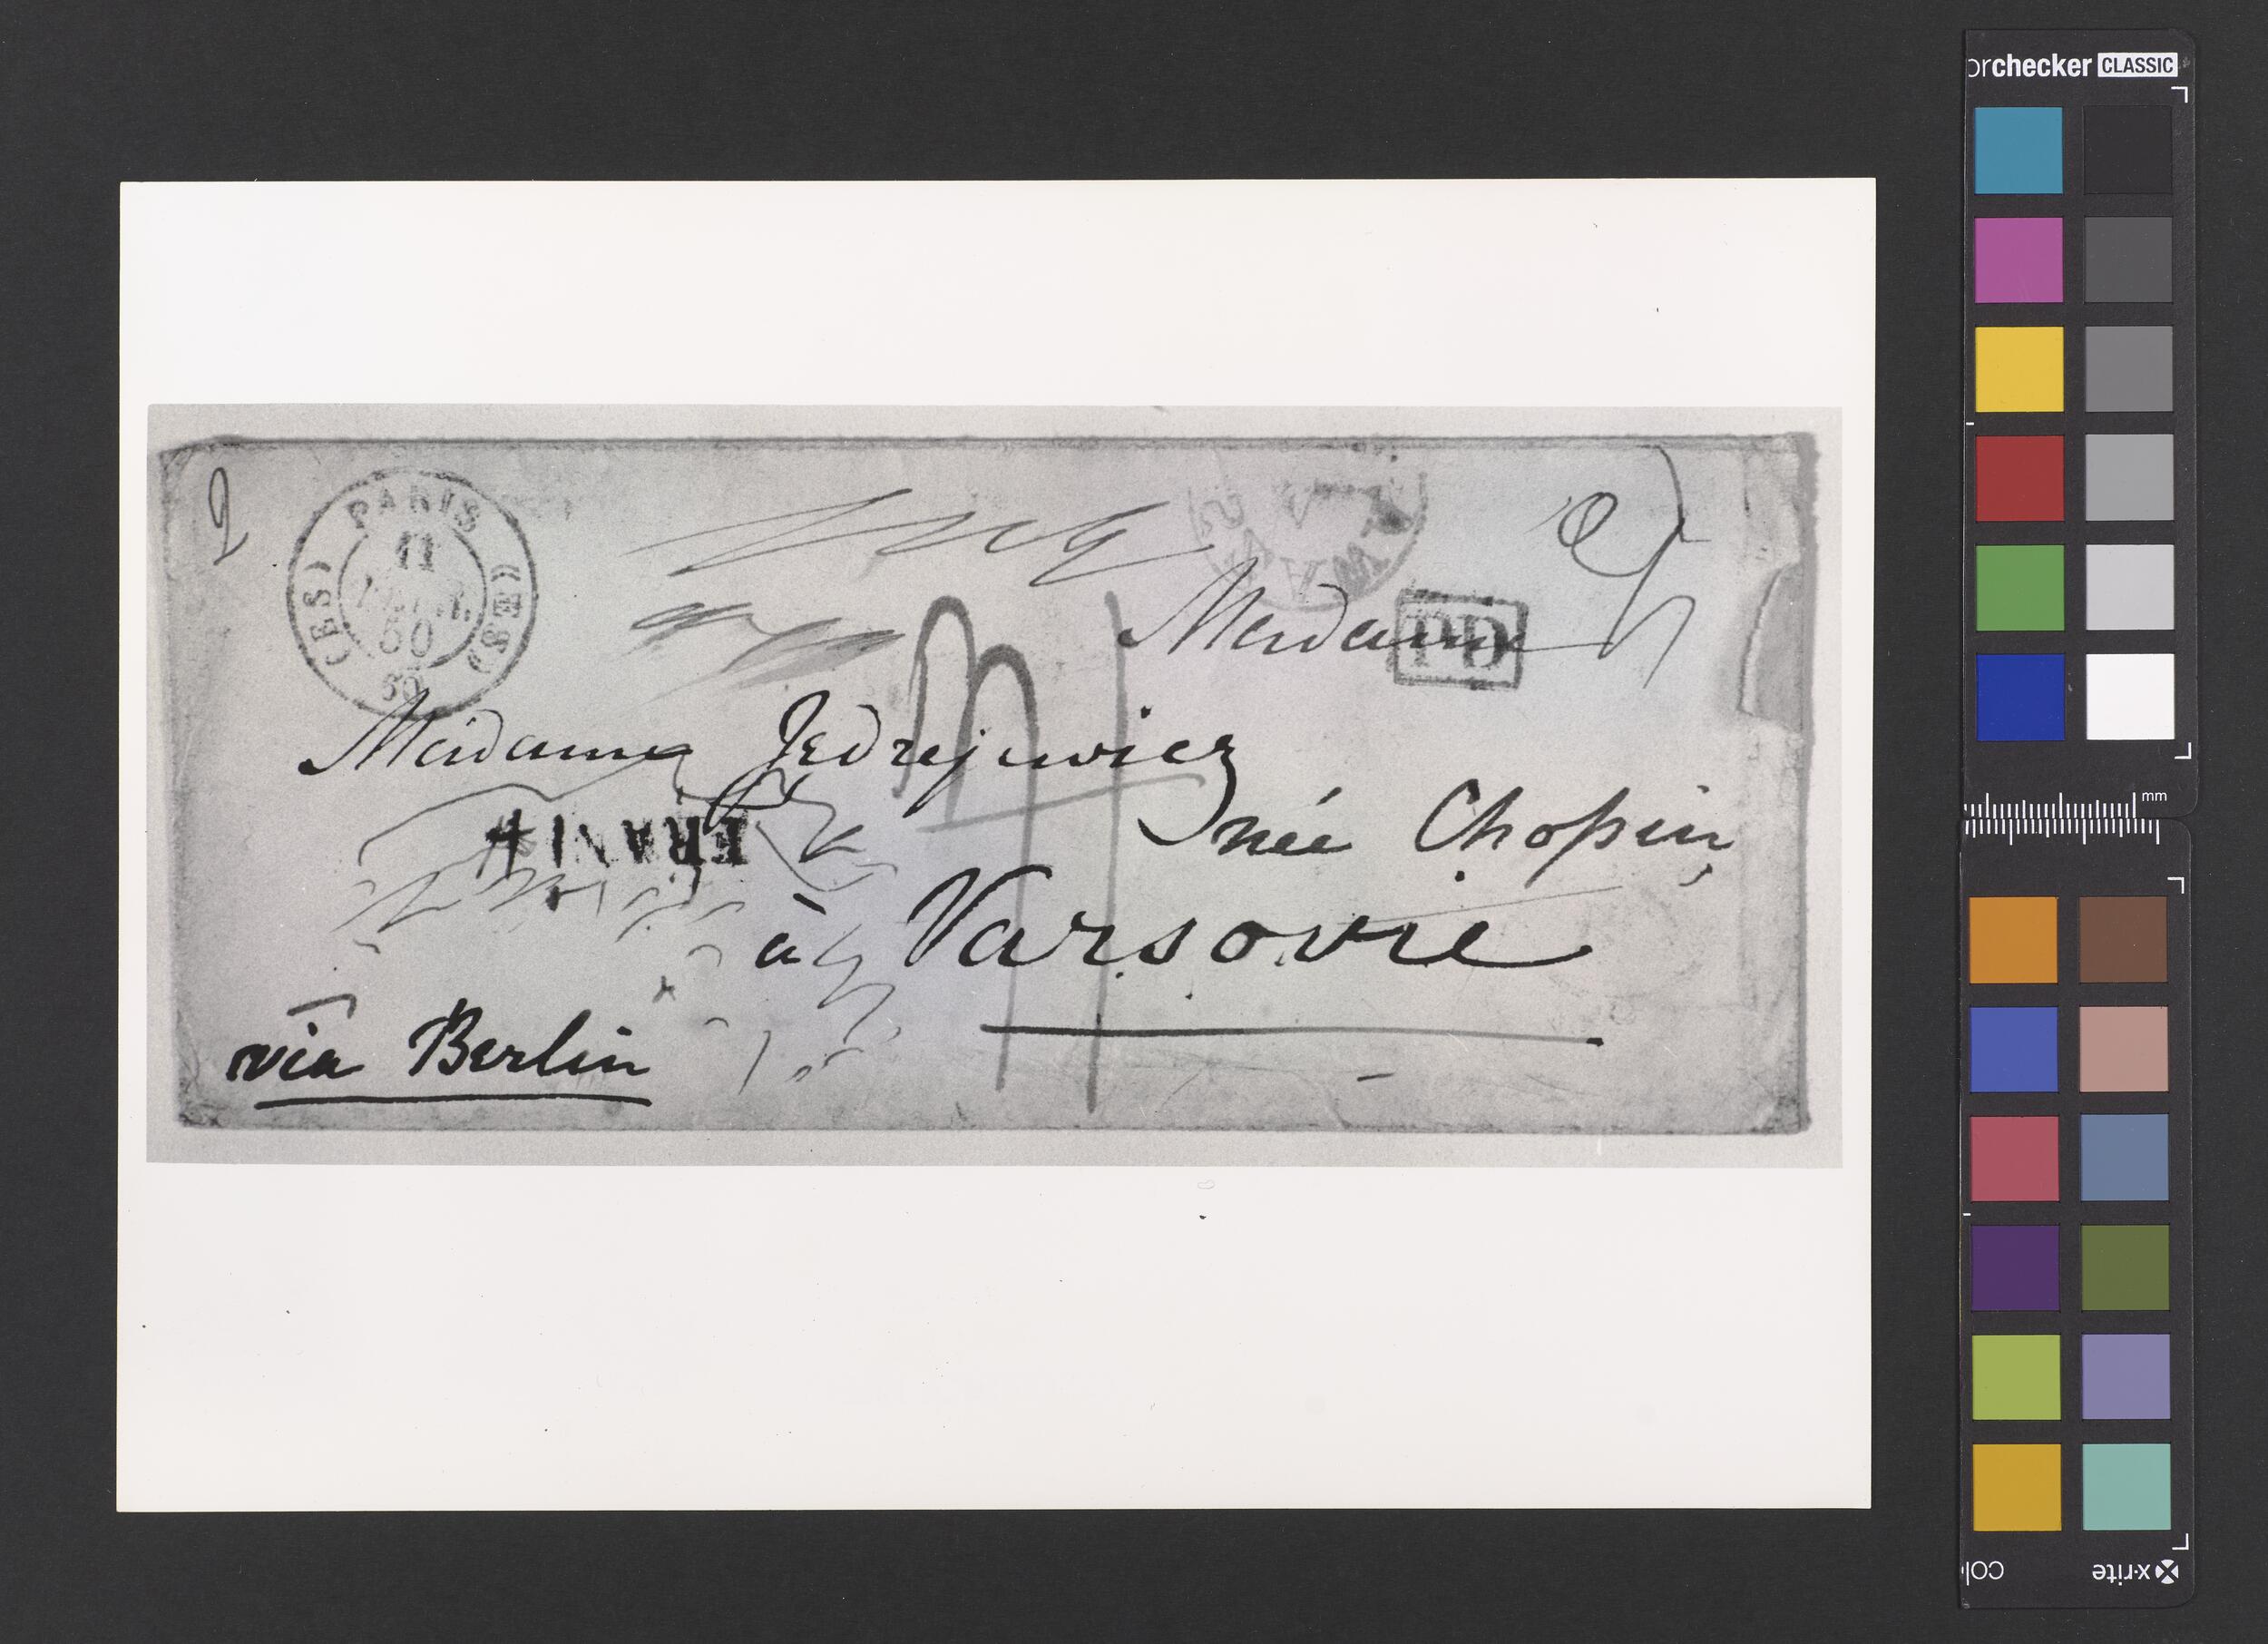 2
PARIS
11
50
60
(ES)
(ES)
Madame
PD
Madame Jedrzejewicz
née Chopin,
FRANKA
à Varsovie
via Berlin
orchecker CLASSIC
mm
x·rite
col